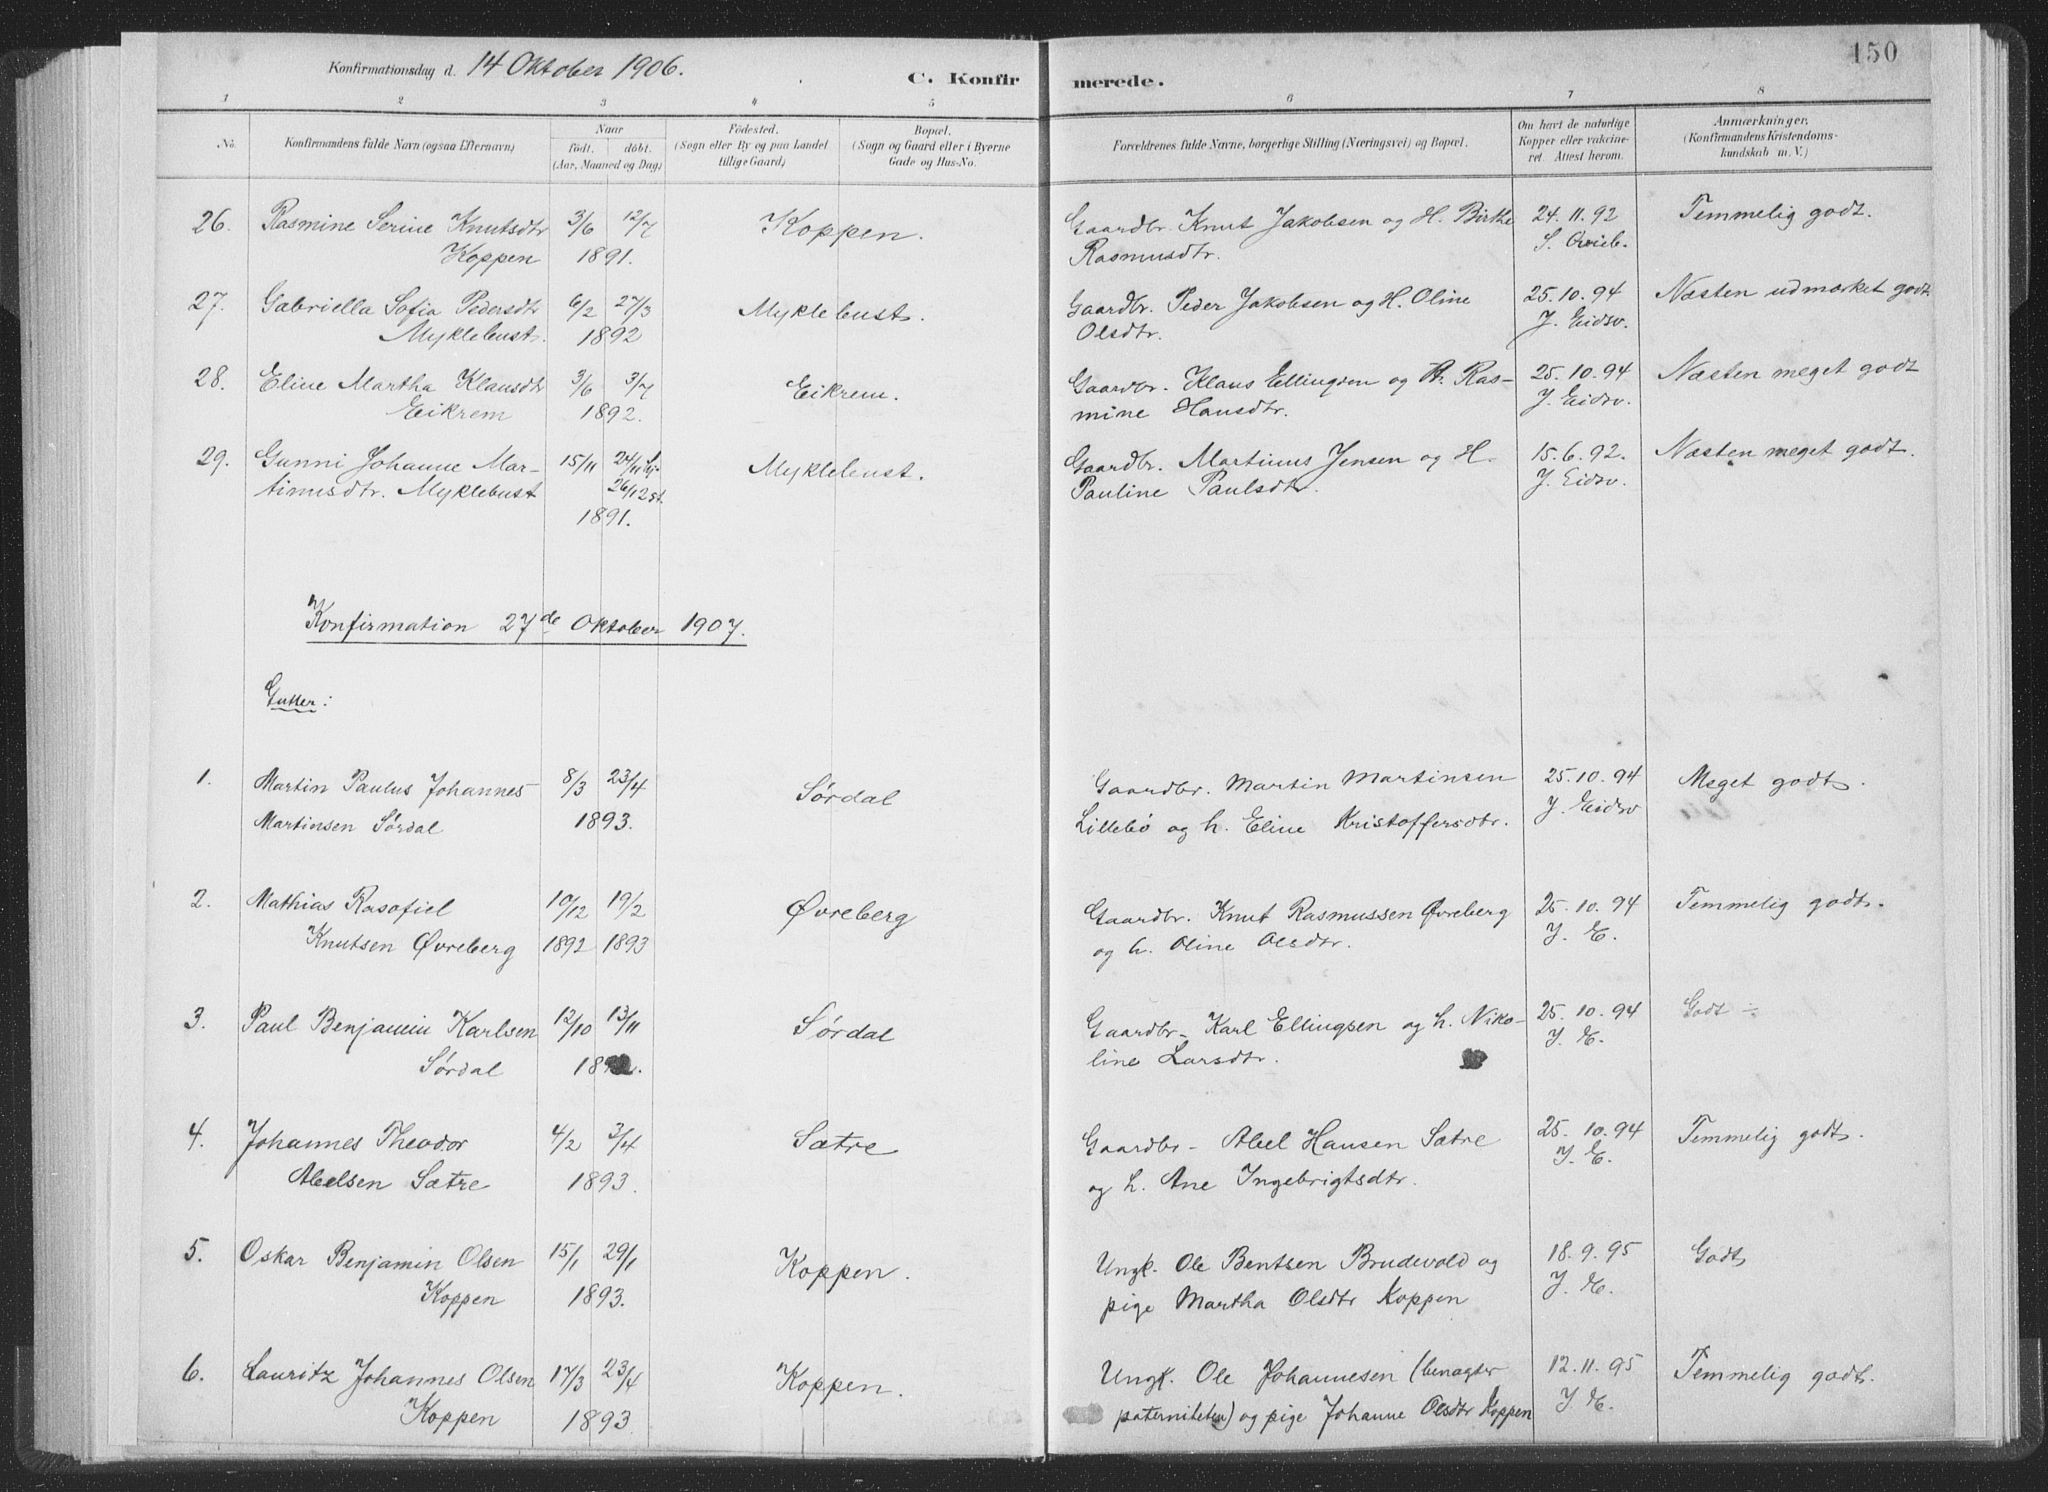 Konfirmationsdag d. 14 Oktober 1906.
C. Konfirmerede.
150
1 2 3 4 5 6 7 8
No.
Konfirmandens fulde Navn (ogsaa Efternavn)
Naar
födt. döbt.
(Aar, Maaned og Dag)
Födested.
(Sogn eller By og paa Landet
tillige Gaard)
Bopæl.
(Sogn og Gaard eller i Byerne
Gade og Hus-No.
Forældrenes fulde Navne, borgerlige Stilling (Næringsvei) og Bopæl.
Om havt de naturlige
Kopper eller vakcine-
ret. Attest herom.
Anmærkninger.
(Konfirmandens Kristendoms-
kundskab m. V.)
26. Rasmine Serine Knutsdtr 3/6 12/7 Koppen. Gaardbr. Knut Jakobsen og H. Birthe 24. 11. 92 Temmelig godt.
Koppen 1891. Rasmusdtr. S.
27. Gabriella Sofia Pedersdtr 6/2 27/3 Myklebust. Gaardbr. Peder Jakobsen og H. Oline 25. 10. 94 Næsten udmærket godt
Myklebust. 1892 Olsdtr. J. Eidsv.
28. Eline Martha Klausdtr 3/6 3/7 Eikrem. Gaardbr. Klaus Ellingsen og H. Ras- 25. 10. 94 Næsten meget godt
Eikrem 1892. mine Hansdtr. J. Eidsv.
29. Gunni Johanne Mar- 15/11 24/11 Hj. Myklebust. Gaardbr. Martinus Jensen og H. 15. 6. 92. Næsten meget godt.
tinusdtr. Myklebust 26/12 st. Pauline Paulsdtr. J. Eidsv.
1891.
Konfirmation 27de Oktober 1907.
Gutter:
1. Martin Paulus Johannes 8/3 23/4 Sørdal Gaardbr. Martin Martinsen 25. 10. 94 Meget godt.
Martinsen Sørdal 1893. Lillebö og h. Eline Kristoffersdtr. J. Eidsv
2. Mathias Rasofiel 10/12 19/2 Øvreberg Gaardbr. Knut Rasmussen Øvreberg 25. 10. 94 Temmelig godt.
Knutsen Øvreberg 1892 1893 og h. Oline Olsdtr. J. E.
3. Paul Benjamin Karlsen 12/10 13/11 Sørdal Gaardbr- Karl Ellingsen og h. Niko- 25. 10. 94 Godt ÷
Sørdal 1892. line Larsdtr. J. E.
4. Johannes Theodor 4/2 3/4 Sætre Gaardbr- Abel Hansen Sætre 25. 10. 94 Temmelig godt.
Abelsen Sætre 1893. og h. Ane Ingebrigtsdtr. J. E.
5. Oskar Benjamin Olsen 15/1 29/1 Koppen. Ungk. Ole Bentsen Brudevold og 18. 9. 95 Godt
Koppen 1893. pige Martha Olsdtr Koppen J. E.
6. Lauritz Johannes Olsen 17/3 23/4 Koppen. Ungk. Ole Johannesen (benægter 12. 11. 95 Temmelig godt.
Koppen 1893 paterniteten) og pige Johanne Olsdtr Koppen J. E.